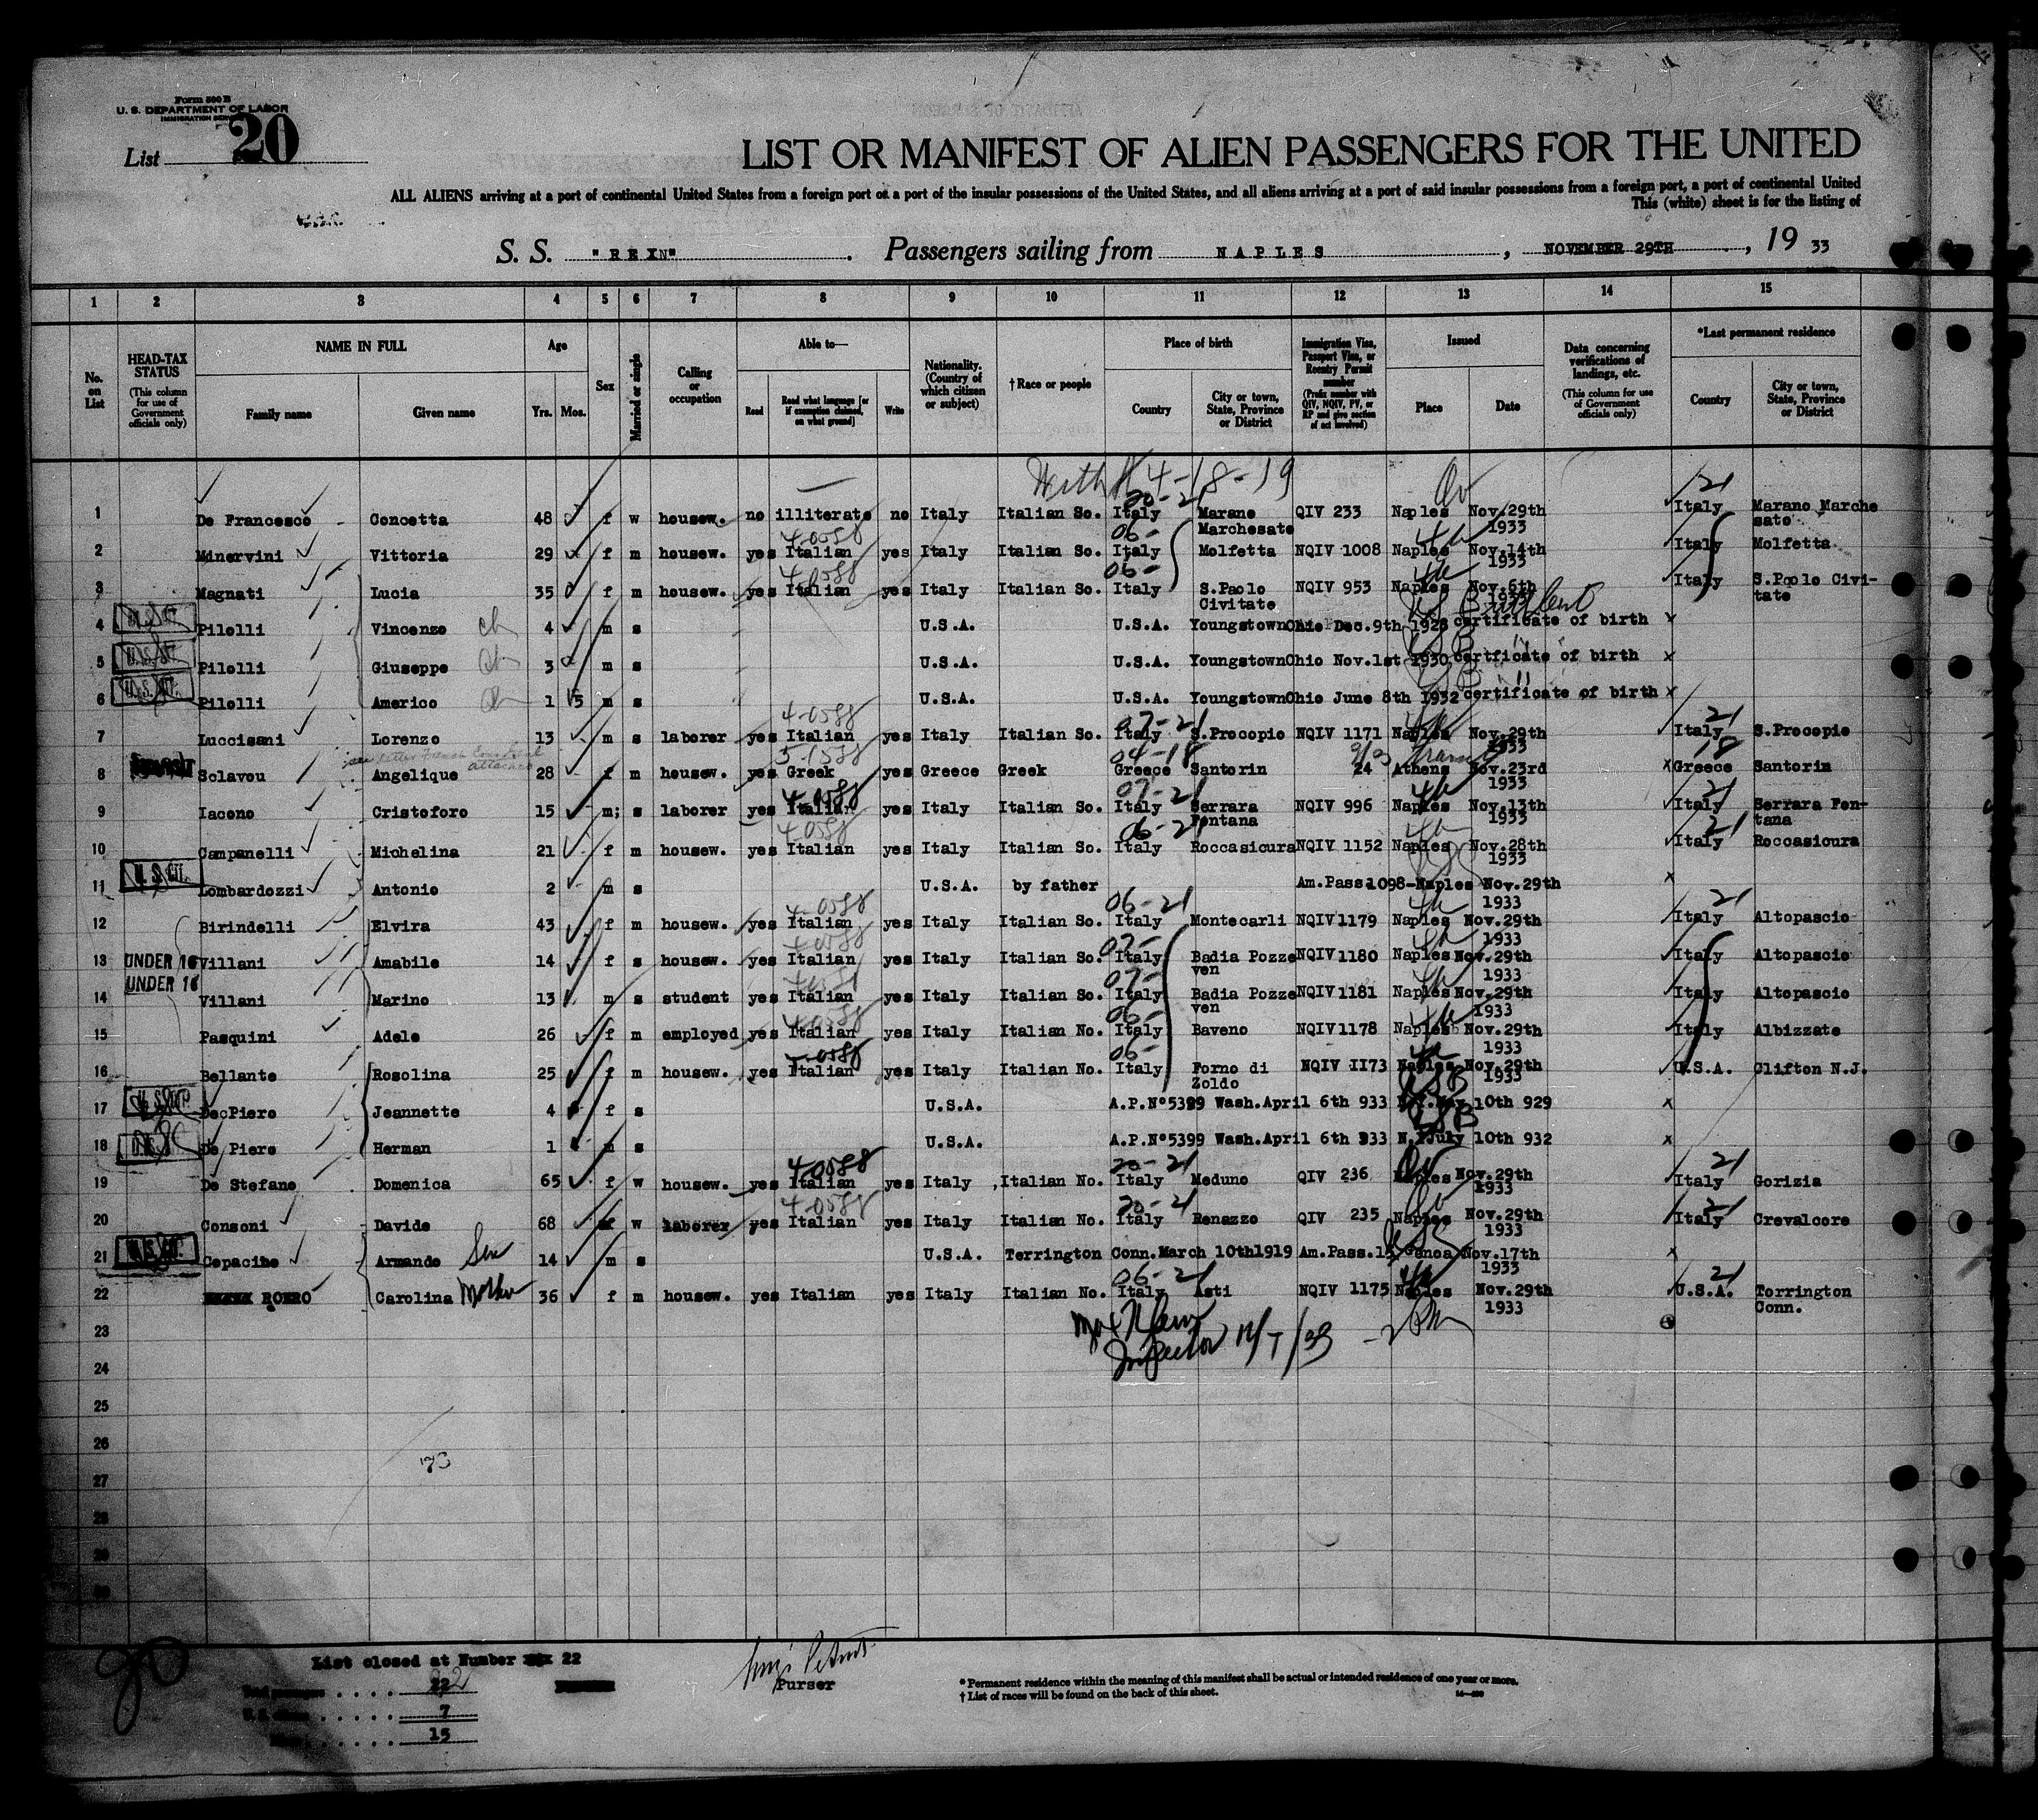 Form 500 B
U. S. DEPARTMENT OF LABOR
IMMIGRATION SERVICE
List 20
LIST OR MANIFEST OF ALIEN PASSENGERS FOR THE UNITED
ALL ALIENS arriving at a port of continental United States from a foreign port or a port of the insular possessions of the United States, and all aliens arriving at a port of said insular possessions from a foreign port, a port of continental United
This (white) sheet is for the listing of
S. S. "REX" . Passengers sailing from NAPLES , NOVEMBER 29TH , 19 33
1 2 3 4 5 6 7 8 9 10 11 12 13 14 15
No. on List
HEAD-TAX STATUS (This column for use of Government officials only)
NAME IN FULL Family name Given name
Age Yrs. Mos.
Sex
Married or single
Calling or occupation
Able to— Read Read what language [or if exemption claimed, on what ground] Write
Nationality. (Country of which citizen or subject)
†Race or people
Place of birth Country City or town, State, Province or District
Immigration Visa, Passport Visa, or Reentry Permit number (Prefix number with QIV, NQIV, PV, or RP and give section of act involved)
Issued Place Date
Data concerning verifications of landings, etc. (This column for use of Government officials only)
*Last permanent residence Country City or town, State, Province or District
4-18-19
1 De Francesco Concetta 48 f w housew. no illiterate no Italy Italian So. Italy Marano Marchesate QIV 233 Naples Nov.29th 1933 Italy Marano Marche sato
2 Minervini Vittoria 29 f m housew. yes Italian yes Italy Italian So. Italy Molfetta NQIV 1008 Naples Nov.14th 1933 Italy Molfetta
3 Magnati Lucia 35 f m housew. yes Italian yes Italy Italian So. Italy S.Paolo Civitate NQIV 953 Naples Nov.6th 1933 Italy S.Paolo Civi-tate
4 Pilelli Vincenzo ch 4 m s U.S.A. U.S.A. Youngstown Ohio Dec.9th 1928 certificate of birth x
5 Pilelli Giuseppe ch 3 m s U.S.A. U.S.A. Youngstown Ohio Nov.1st 1930 certficate of birth x
6 Pilelli Americo ch 1 5 m s U.S.A. U.S.A. Youngstown Ohio June 8th 1932 certificate of birth x
7 Luccisani Lorenzo 13 m s laborer yes Italian yes Italy Italian So. Italy S.Procopio NQIV 1171 Naples Nov.29th 1933 Italy S.Procopio
8 Sclavou Angelique 28 f m housew. yes Greek yes Greece Greek Greece Santorin 24 Athens Nov.23rd 1933 x Greece Santorin
9 Iacono Cristoforo 15 m; s laborer yes Italian yes Italy Italian So. Italy Serrara Fontana NQIV 996 Naples Nov.13th 1933 Italy Serrara Fon-tana
10 Campanelli Michelina 21 f m housew. yes Italian yes Italy Italian So. Italy Roccasicura NQIV 1152 Naples Nov.28th 1933 Italy Roccasicura
11 U.S. CIT. Lombardozzi Antonio 2 m s U.S.A. by father Am.Pass.1098-Naples Nov.29th 1933 x
12 Birindelli Elvira 43 f m housew. yes Italian yes Italy Italian So. Italy Montecarli NQIV 1179 Naples Nov.29th 1933 Italy Altopascio
13 UNDER 16 Villani Amabile 14 f s housew. yes Italian yes Italy Italian So. Italy Badia Pozze ven NQIV 1180 Naples Nov.29th 1933 Italy Altopascio
14 UNDER 16 Villani Marino 13 m s student yes Italian yes Italy Italian So. Italy Badia Pozze ven NQIV 1181 Naples Nov.29th 1933 Italy Altopascio
15 Pasquini Adele 26 f m employed yes Italian yes Italy Italian No. Italy Baveno NQIV 1178 Naples Nov.29th 1933 Italy Albizzate
16 Bellante Rosolina 25 f m housew. yes Italian yes Italy Italian No. Italy Forno di Zoldo NQIV II73 Naples Nov.29th 1933 U.S.A. Clifton N.J.
17 De Piero Jeannette 4 f s U.S.A. A.P.N°5399 Wash.April 6th 933 10th 929 x
18 De Piero Herman 1 m s U.S.A. A.P.N°5399 Wash.April 6th 933 N.Y July 10th 932 x
19 De Stefano Domenica 65 f w housew. yes Italian yes Italy Italian No. Italy Meduno QIV 236 Naples Nov.29th 1933 Italy Gorizia
20 Consoni Davide 68 w laborer yes Italian yes Italy Italian No. Italy Renazzo QIV 235 Naples Nov.29th 1933 Italy Crevalcore
21 U.S. CIT. Cepacine Armando Son 14 m s U.S.A. Torrington Conn.March 10th1919 Am.Pass.15 Genoa Nov.17th 1933 x
22 ROERO Carolina Mother 36 f m housew. yes Italian yes Italy Italian No. Italy Asti NQIV 1175 Naples Nov.29th 1933 U.S.A. Torrington Conn.
23
Inspector 12/7/33
24
25
26
27
28
29
30
List closed at Number 22
22
7
15
Purser
* Permanent residence within the meaning of this manifest shall be actual or intended residence of one year or more.
† List of races will be found on the back of this sheet.